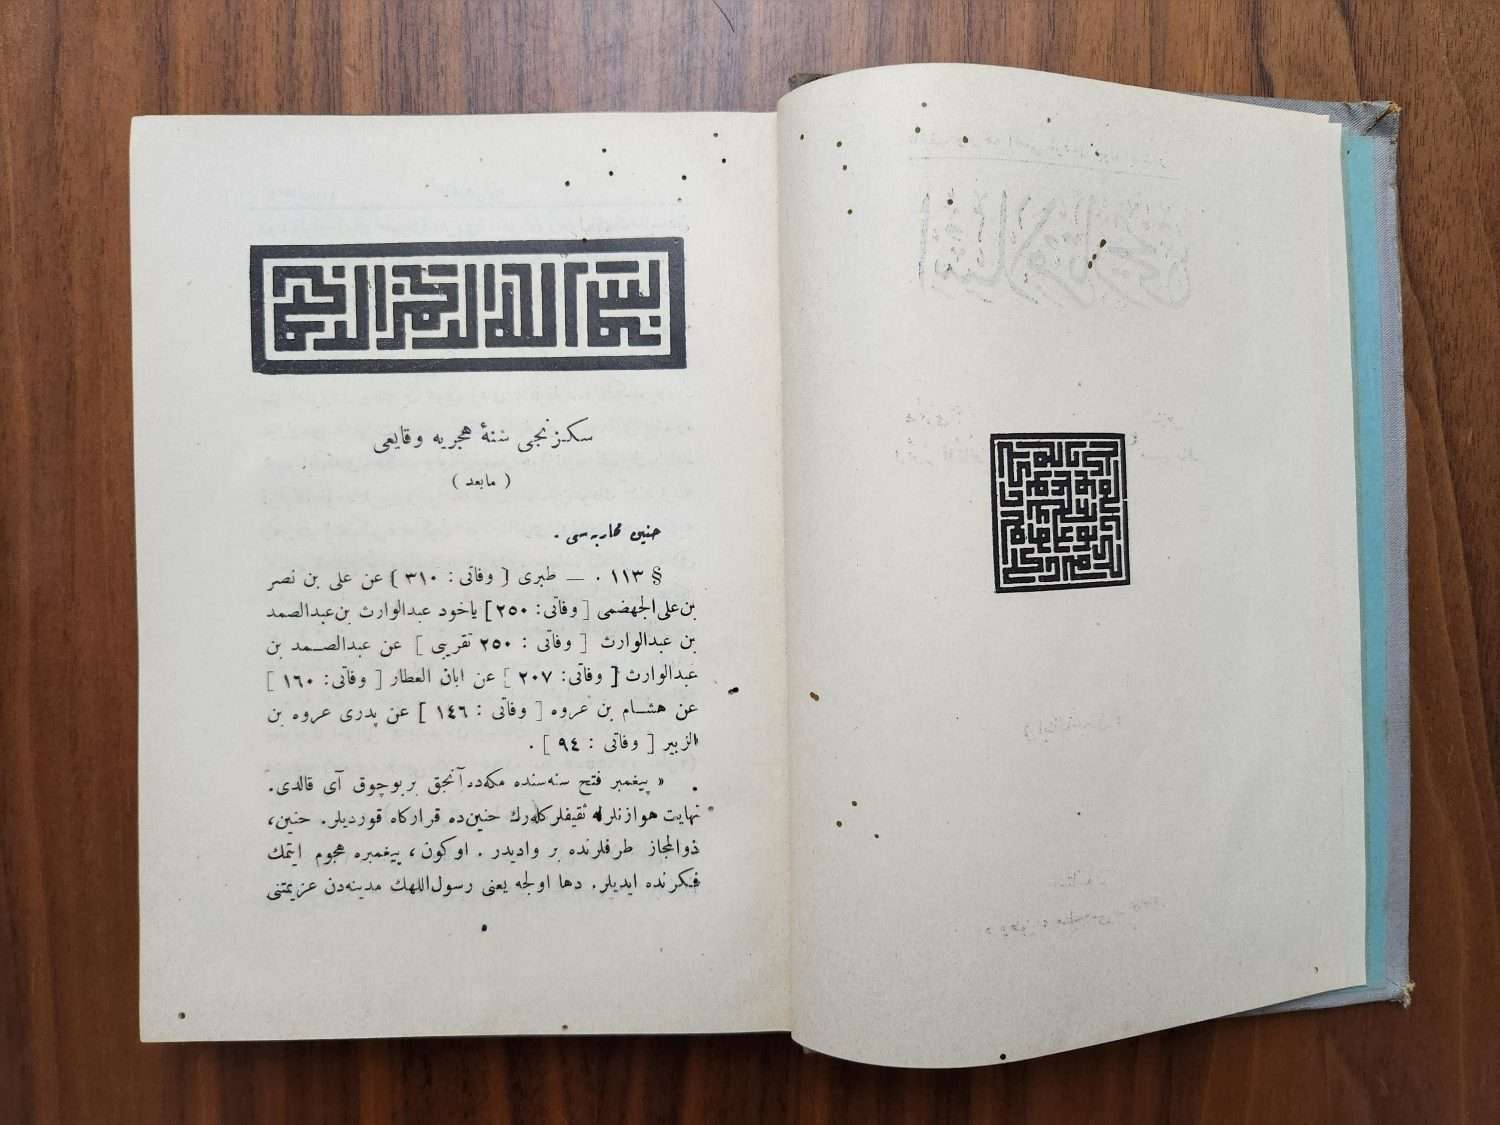 بسم الله الرحمن الرحيم
سكزنجی سنهٔ هجریه وقایعی
( مابعد )
حنین محاربه‌سی .
§ ١١٣ . — طبری [ وفاتی : ٣١٠ ] عن علی بن نصر
بن‌علی الجهضمی [ وفاتی : ٢٥٠ ] یاخود عبدالوارث بن‌عبدالصمد
بن عبدالوارث [ وفاتی : ٢٥٠ تقریبی ] عن عبدالصمد بن
عبدالوارث [ وفاتی: ٢٠٧ ] عن ابان العطار [ وفاتی: ١٦٠ ]
عن هشام بن عروه [ وفاتی : ١٤٦ ] عن پدری عروه بن
الزبیر [ وفاتی : ٩٤ ] .
« پیغمبر فتح سنه‌سنده مکه‌ده آنجق بربوچوق آی قالدی.
نهایت هوازنلرله ثقیفلر کله‌رك حنین‌ده قرارکاه قوردیلر. حنین،
ذوالمجاز طرفلرنده بر وادیدر . اوکون، پیغمبره هجوم ایتمك
فکرنده ایدیلر. دها اولجه یعنی رسول‌اللهك مدینه‌دن عزیمتنی